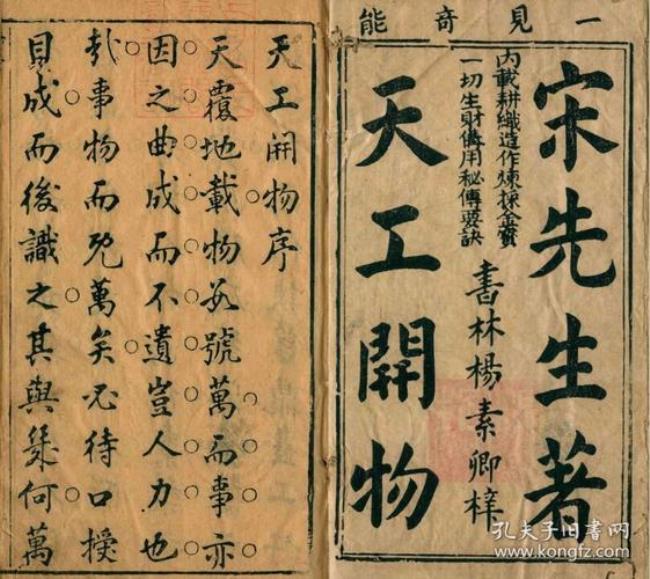 一見奇能
宋先生著
内載耕織造作煉採金寳
一切生財備用秘傳要訣
書林楊素卿梓
天工開物
天工開物序
天覆地載物数號萬而事亦
因之曲成而不遺豈人力也
哉事物而既萬矣必待口授
目成而後識之其與幾何萬
孔夫子旧书网
www.kongfz.com